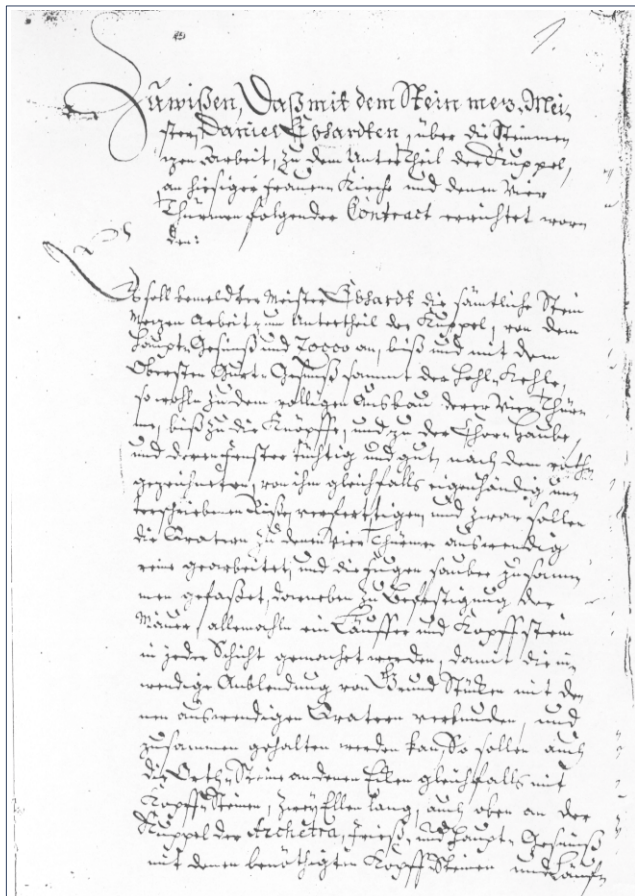 1.
Zuwißen, Daß mit dem Stein mez, Mei,
ster, Daniel Ebhardten, über die Steinmez
gen Arbeit, zu dem Untertheil der Kuppel,
an hiesiger Frauen Kirche und denen Vier
Thürmen folgender Contract errichtet wor
den:
Es soll bemeldter Meister Ebhardt die sämtliche Stein
Mezen Arbeit zum Untertheil der Kuppel, von dem
Haupt-Gesimß und Zocco an, biß und mit dem
Obersten Gurt-Gesimß sammt der Hohl-Kehle,
so wohl zu dem völligen Ausbau derer Vier Thür
me, biß zu die Knöpffe, und zu der Chor-Haube,
und deren Fenster tüchtig und gut, nach dem
gezeichneten, von ihm gleichfalls eigenhändig un
terschriebenen Riße, verfertigen, und zwar sollen
die zu denen Vier Thürmen auswendig
reine gearbeitet, und die Fugen sauber zusam
men gefaßet, darneben zu Befestigung der
Mauer, allemahl ein Läuffer und Kopffstein
in jeder Schicht gemachet werden, damit die in
wendige Anblendung von Grund Stücken mit de
nen auswendigen verbunden, und
zusammen gehalten werden kan, So sollen auch
die Orth-Steine an denen Ecken gleichfalls mit
Kopff-Steinen, zwey Ellen lang, auch oben an der
Kuppel der Archetra, Frieß, und Haupt-Gesimß
mit denen benöthigten Kopff Steinen und Läuff,